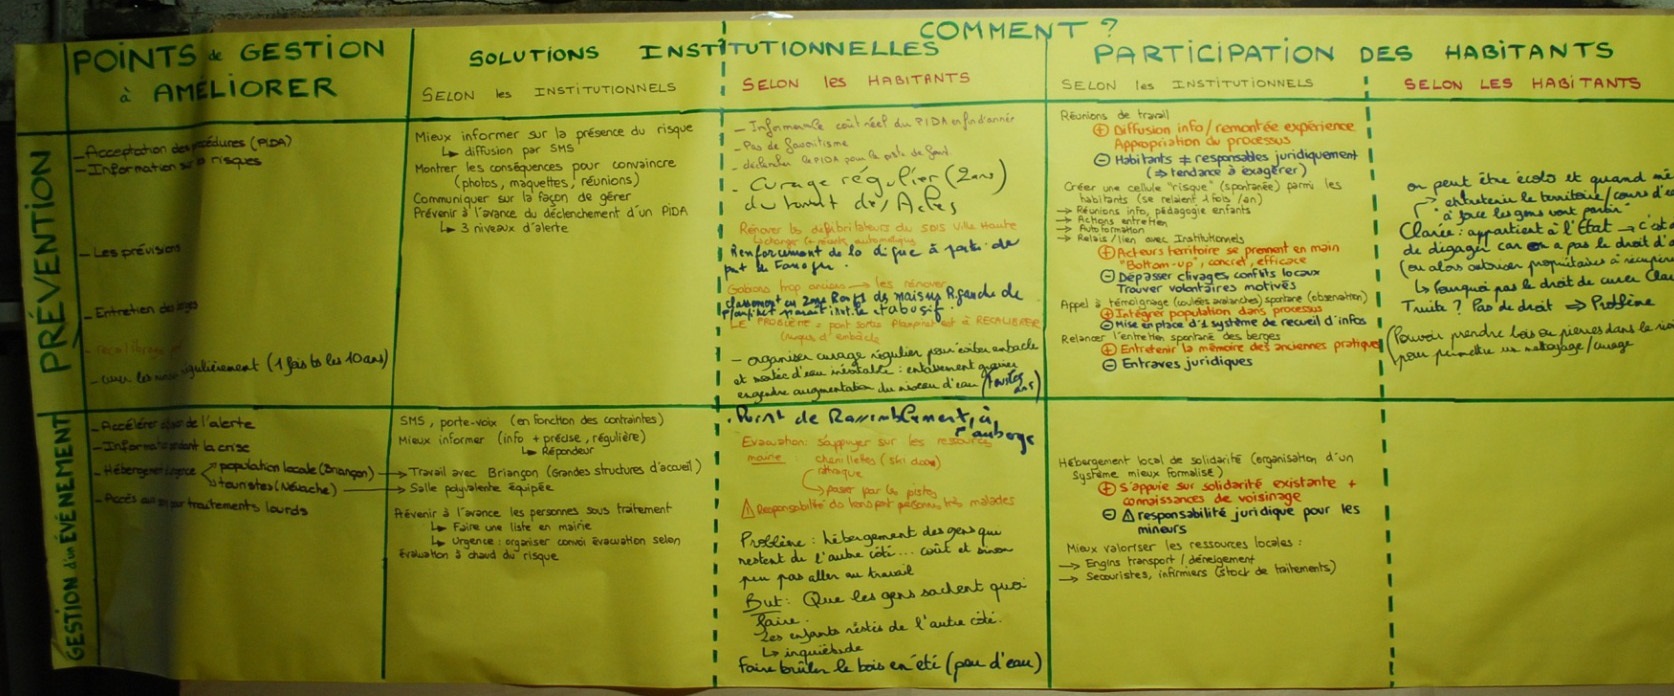 COMMENT ?
POINTS de GESTION
à AMÉLIORER
SOLUTIONS INSTITUTIONNELLES
SELON les INSTITUTIONNELS
SELON les HABITANTS
PARTICIPATION DES HABITANTS
SELON les INSTITUTIONNELS
SELON LES HABITANTS
PRÉVENTION
- Acceptation des procédures (PIDA)
- Information sur risques
- Les prévisions
- Entretien des
régulièrement (1 fois ts les 10 ans)
Mieux informer sur la présence du risque
↳ diffusion par SMS
Montrer les conséquences pour convaincre
(photos, maquettes, réunions)
Communiquer sur la façon de gérer
Prévenir à l'avance du déclenchement d'un PIDA
↳ 3 niveaux d'alerte
- coût réel du PIDA en fin d'année
- Pas de favoritisme
- déclencher le PIDA pour la piste de fond
- Curage régulier (2 ans)
du torrent des Acles
Rénover les défibrillateurs du SDIS Ville Haute
Renforcement de la digue à partir de
pnt le
Gabions trop anciens → les rénover
en zone Rouge de maisons R. gauche de
abusif.
LE PROBLÈME = pont sortie Planpinet est à RECALIBRER
(risque d'embâcle)
- organiser curage régulier pour éviter embâcle
et sortie d'eau inévitable : entassement gravier
engendre augmentation du niveau d'eau (toutes
ans)
Réunions de travail
⊕ Diffusion info / remontée expérience
Appropriation du processus
⊖ Habitants ≠ responsables juridiquement
(⇒ tendance à exagérer)
Créer une cellule "risque" (spontanée) parmi les
habitants (se relaient 1 fois / an)
→ Réunions info, pédagogie enfants
→ Actions entretien
→ Autoformation
→ Relais / lien avec Institutionnels
⊕ Acteurs territoire se prennent en main
"Bottom-up", concret, efficace
⊖ Dépasser clivages conflits locaux
Trouver volontaires motivés
Appel à témoignage (coulées avalanches) spontané (observation)
⊕ Intégrer population dans processus
⊖ Mise en place d'1 système de recueil d'infos
Relancer l'entretien spontané des berges
⊕ Entretenir la mémoire des anciennes pratiques
⊖ Entraves juridiques
on peut être écolo et quand mê
entretenir le territoire / cours d'e
Clarée : appartient à l'État → c'est
de dégager car on a pas le droit d'a
(ou alors autoriser propriétaires à récupére
↳ Pourquoi pas le droit de curer Cla
Truite ? Pas de droit ⇒ Problème
(Pouvoir prendre bois ou pierres dans le
pour permettre un nettoyage / curage
GESTION d'un ÉVÉNEMENT
- Accélérer de l'alerte
- Informer pendant la crise
- Hébergement population locale (Briançon) →
touristes (Névache) →
- Accès aux traitements lourds
SMS, porte-voix (en fonction des contraintes)
Mieux informer (info + précise, régulière)
↳ Répondeur
Travail avec Briançon (Grandes structures d'accueil)
Salle polyvalente équipée
Prévenir à l'avance les personnes sous traitement
↳ Faire une liste en mairie
↳ Urgence : organiser convoi évacuation selon
Évaluation à chaud du risque
. Point de Rassemblement, à
l'auberge
Evacuation: s'appuyer sur les ressources
mairie : chenillettes (ski doo)
↳ passer par les pistes
⚠ Responsabilité du transport personnes très malades
Problème : hébergement des gens qui
restent de l'autre côté... coût et sinon
peu pas aller au travail
But : Que les gens sachent quoi
faire.
Les enfants restés de l'autre côté.
↳ inquiétude
Faire brûler le bois en été (peu d'eau)
Hébergement local de solidarité (organisation d'un
système mieux formalisé)
⊕ S'appuie sur solidarité existante +
connaissances de voisinage
⊖ ⚠ responsabilité juridique pour les
mineurs
Mieux valoriser les ressources locales :
→ Engins transport / déneigement
→ Secouristes, infirmiers (stock de traitements)